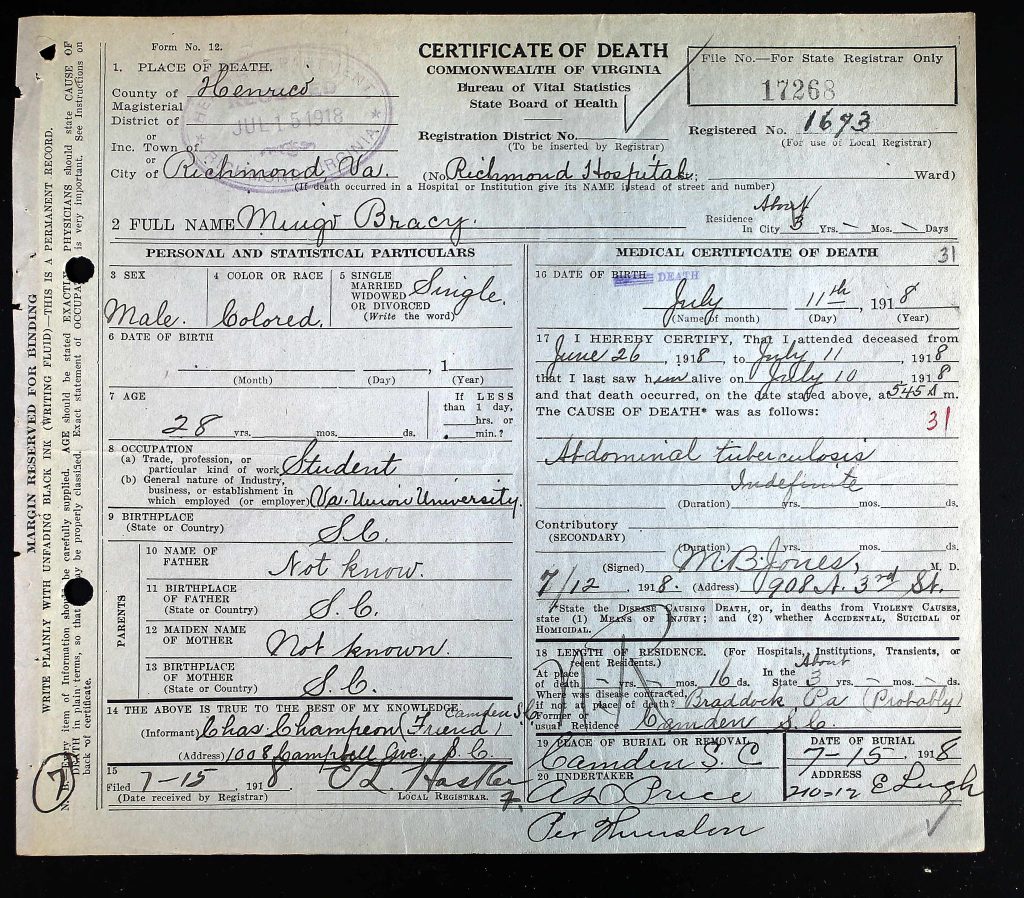 Form No. 12.
CERTIFICATE OF DEATH
COMMONWEALTH OF VIRGINIA
Bureau of Vital Statistics
State Board of Health
File No.—For State Registrar Only
17268
1. PLACE OF DEATH.
County of Henrico
Magisterial
District of
or
Inc. Town of
or
City of Richmond, Va.
RECEIVED
JUL 15 1918
VIRGINIA
Registration District No.
(To be inserted by Registrar)
Registered No. 1673
(For use of Local Registrar)
(No. Richmond Hospital; Ward)
(If death occurred in a Hospital or Institution give its NAME instead of street and number)
2 FULL NAME Mingo Bracy.
Residence About
In City 3 Yrs. – Mos. – Days
PERSONAL AND STATISTICAL PARTICULARS
3 SEX
Male.
4 COLOR OR RACE
Colored.
5 SINGLE
MARRIED
WIDOWED
OR DIVORCED
(Write the word)
Single.
6 DATE OF BIRTH
, 1
(Month) (Day) (Year)
7 AGE
28 yrs. mos. ds.
If LESS
than 1 day,
hrs. or
min.?
8 OCCUPATION
(a) Trade, profession, or
particular kind of work Student
(b) General nature of Industry,
business, or establishment in
which employed (or employer) Va. Union University.
9 BIRTHPLACE
(State or Country) S.C.
PARENTS
10 NAME OF
FATHER Not know.
11 BIRTHPLACE
OF FATHER
(State or Country) S.C.
12 MAIDEN NAME
OF MOTHER Not known.
13 BIRTHPLACE
OF MOTHER
(State or Country) S.C.
14 THE ABOVE IS TRUE TO THE BEST OF MY KNOWLEDGE
Camden S.C.
(Informant) Chas. Champeon (Friend)
(Address) 1008 Campbell Ave. S.C.
15
Filed 7-15, 1918
(Date received by Registrar) LOCAL REGISTRAR.
MEDICAL CERTIFICATE OF DEATH
31
16 DATE OF BIRTH DEATH
July 11th, 1918
(Name of month) (Day) (Year)
17 I HEREBY CERTIFY, That I attended deceased from
June 26, 1918, to July 11, 1918
that I last saw him alive on July 10 1918
and that death occurred, on the date stated above, at 545 A m.
The CAUSE OF DEATH* was as follows:
31
Abdominal tuberculosis
Indefinite
(Duration) yrs. mos. ds.
Contributory
(SECONDARY)
(Duration) yrs. mos. ds.
(Signed) M.B. Jones, M. D.
7/12 1918. (Address) 908 N. 3rd St.
*State the DISEASE CAUSING DEATH, or, in deaths from VIOLENT CAUSES,
state (1) MEANS OF INJURY; and (2) whether ACCIDENTAL, SUICIDAL or
HOMICIDAL.
18 LENGTH OF RESIDENCE. (For Hospitals, Institutions, Transients, or
recent Residents.)
At place
of death – yrs. – mos. 16 ds.
In the About
State 3 yrs. – mos. – ds.
Where was disease contracted,
if not at place of death? Braddock Pa (Probably)
Former or
usual Residence Camden S.C.
19 PLACE OF BURIAL OR REMOVAL
Camden S.C
DATE OF BURIAL
7-15, 1918
20 UNDERTAKER
A D Price
ADDRESS
210-12 E Leigh
MARGIN RESERVED FOR BINDING
WRITE PLAINLY WITH UNFADING BLACK INK (WRITING FLUID)—THIS IS A PERMANENT RECORD.
7